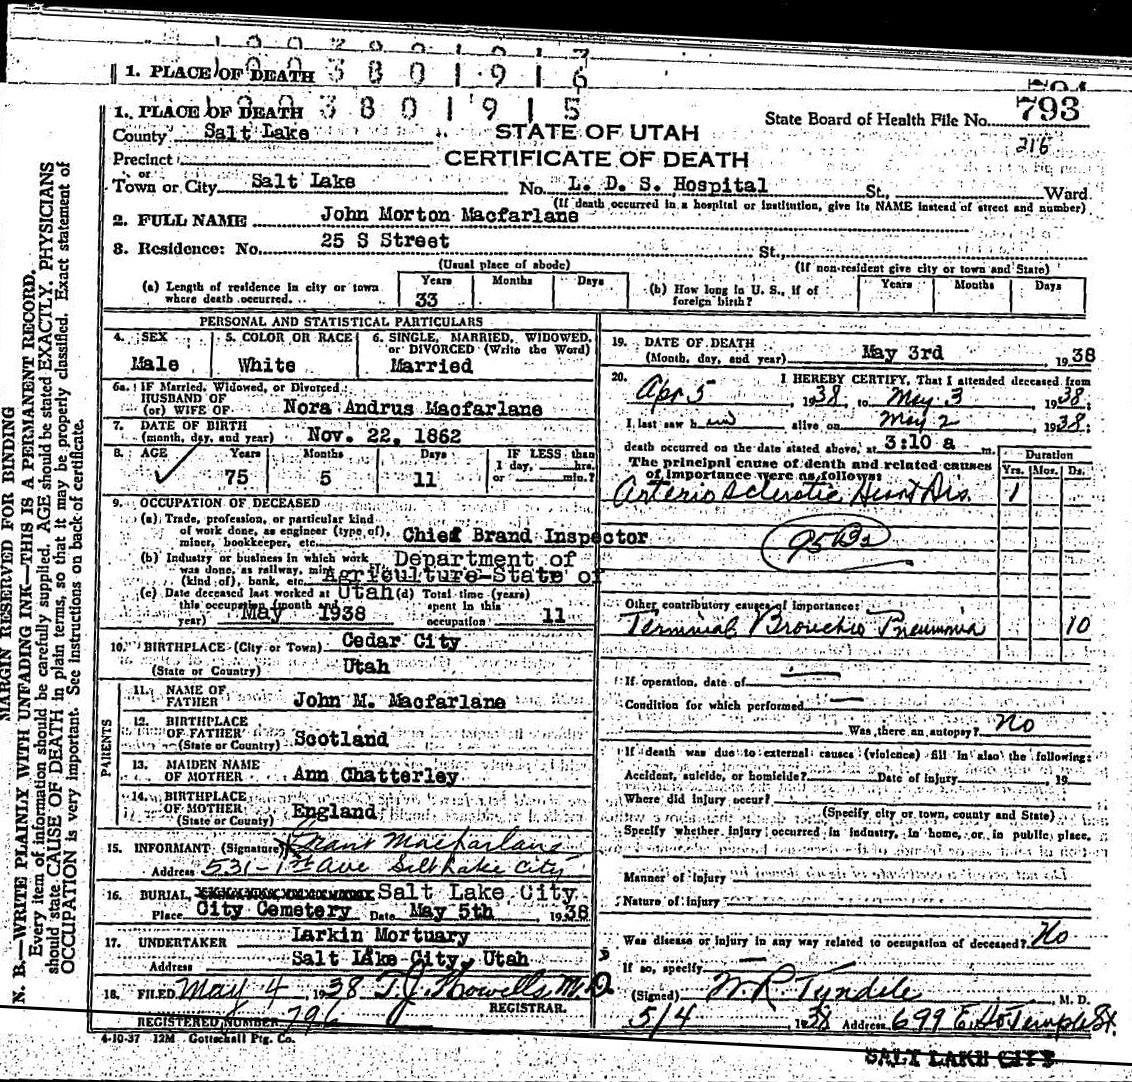 1. PLACE OF DEATH
10038019 16
1. PLACE OF DEATH
10038019 15
State Board of Health File No. 793
216
County Salt Lake
STATE OF UTAH
Precinct
CERTIFICATE OF DEATH
or
Town or City Salt Lake No. L. D. S. Hospital St., Ward
(If death occurred in a hospital or institution, give its NAME instead of street and number)
2. FULL NAME John Morton Macfarlane
3. Residence: No. 25 S Street St.,
(Usual place of abode) (If non-resident give city or town and State)
(a) Length of residence in city or town where death occurred. Years 33 Months Days
(b) How long in U. S., if of foreign birth? Years Months Days
PERSONAL AND STATISTICAL PARTICULARS
4. SEX Male
5. COLOR OR RACE White
6. SINGLE, MARRIED, WIDOWED, or DIVORCED (Write the Word) Married
6a. If Married, Widowed, or Divorced
HUSBAND OF
(or) WIFE OF Nora Andrus Macfarlane
7. DATE OF BIRTH
(month, day, and year) Nov. 22, 1862
8. AGE Years 75 Months 5 Days 11 IF LESS than 1 day, hrs. or min.?
9. OCCUPATION OF DECEASED
(a) Trade, profession, or particular kind
of work done, as engineer (type of),
miner, bookkeeper, etc. Chief Brand Inspector
(b) Industry or business in which work
was done, as railway, mine
(kind of), bank, etc. Department of Agriculture-State of Utah
(c) Date deceased last worked at
this occupation (month and
year) May 1938
(d) Total time (years)
spent in this
occupation 11
10. BIRTHPLACE (City or Town) Cedar City
(State or Country) Utah
PARENTS
11. NAME OF
FATHER John M. Macfarlane
12. BIRTHPLACE
OF FATHER
(State or Country) Scotland
13. MAIDEN NAME
OF MOTHER Ann Chatterley
14. BIRTHPLACE
OF MOTHER
(State or County) England
15. INFORMANT (Signature) Grant Macfarlane
Address 531 - 1st Ave Salt Lake City
16. BURIAL, Salt Lake City
Place City Cemetery Date May 5th 1938
17. UNDERTAKER Larkin Mortuary
Address Salt Lake City, Utah
18. FILED May 4, 1938 T. J. Howells M.D.
REGISTRAR.
REGISTERED NUMBER 796
4-10-37 12M Gottschall Ptg. Co.
19. DATE OF DEATH
(Month, day, and year) May 3rd 1938
20. I HEREBY CERTIFY, That I attended deceased from
Apr 5, 1938, to May 3, 1938;
I last saw him alive on May 2 1938;
death occurred on the date stated above, at 3:10 a m.
The principal cause of death and related causes
of importance were as follows:
Duration
Yrs. Mos. Ds.
Arterio Sclerotic Heart Dis. 1
Other contributory causes of importance:
Terminal Broncho Pneumonia 10
If operation, date of
Condition for which performed
Was there an autopsy? No
If death was due to external causes (violence) fill in also the following:
Accident, suicide, or homicide? Date of injury 19
Where did injury occur?
(Specify city or town, county and State)
Specify whether injury occurred in industry, in home, or in public place.
Manner of injury
Nature of injury
Was disease or injury in any way related to occupation of deceased? No
If so, specify
(Signed) W. R. Tyndale, M. D.
5/4 1938 Address 699 E. So Temple St.
SALT LAKE CITY
MARGIN RESERVED FOR BINDING
N. B.—WRITE PLAINLY WITH UNFADING INK—THIS IS A PERMANENT RECORD.
Every item of information should be carefully supplied. AGE should be stated EXACTLY. PHYSICIANS
should state CAUSE OF DEATH in plain terms, so that it may be properly classified. Exact statement of
OCCUPATION is very important. See instructions on back of certificate.